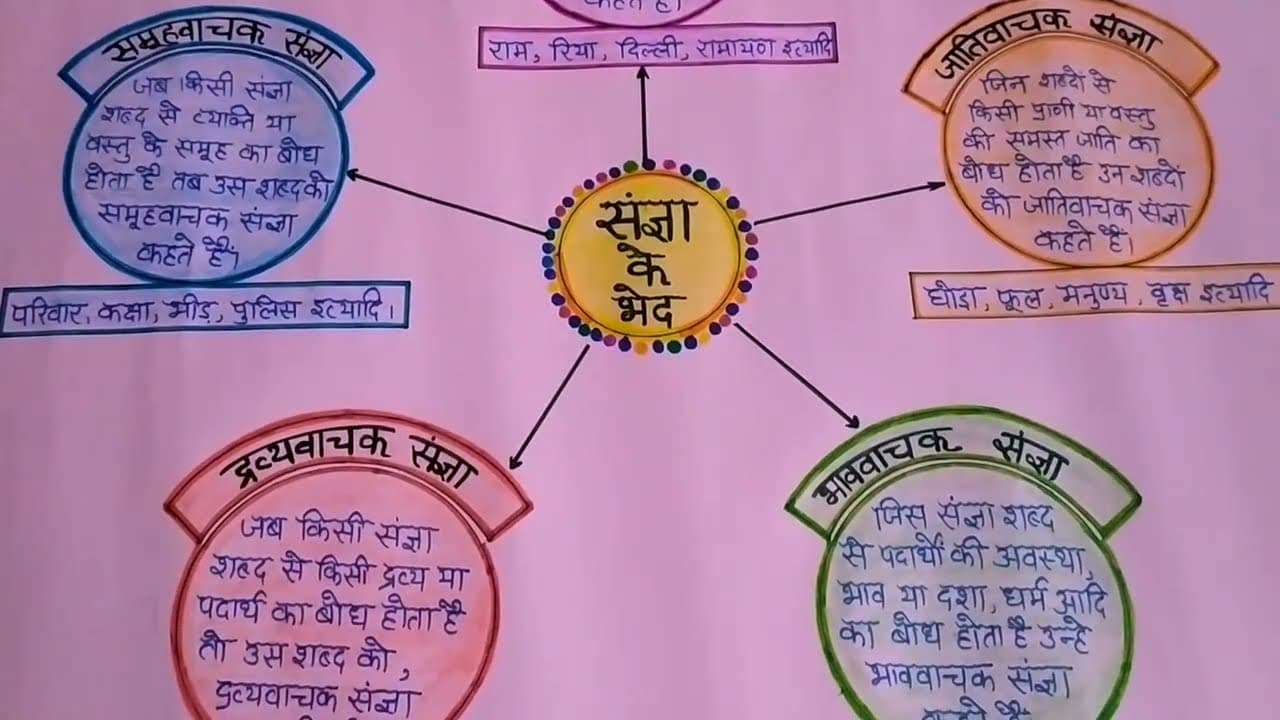 कहते हैं।
राम, रिया, दिल्ली, रामायण इत्यादि
समूहवाचक संज्ञा
जब किसी संज्ञा
शब्द से व्यक्ति या
वस्तु के समूह का बोध
होता है तब उस शब्द को
समूहवाचक संज्ञा
कहते हैं।
परिवार, कक्षा, भीड़, पुलिस इत्यादि।
जातिवाचक संज्ञा
जिन शब्दों से
किसी प्राणी या वस्तु
की समस्त जाति का
बोध होता है उन शब्दों
को जातिवाचक संज्ञा
कहते हैं।
घोड़ा, फूल, मनुष्य, वृक्ष इत्यादि
संज्ञा
के
भेद
द्रव्यवाचक संज्ञा
जब किसी संज्ञा
शब्द से किसी द्रव्य या
पदार्थ का बोध होता है
तो उस शब्द को,
द्रव्यवाचक संज्ञा
भाववाचक संज्ञा
जिस संज्ञा शब्द
से पदार्थों की अवस्था,
भाव या दशा, धर्म आदि
का बोध होता है उन्हे
भाववाचक संज्ञा
कहते हैं